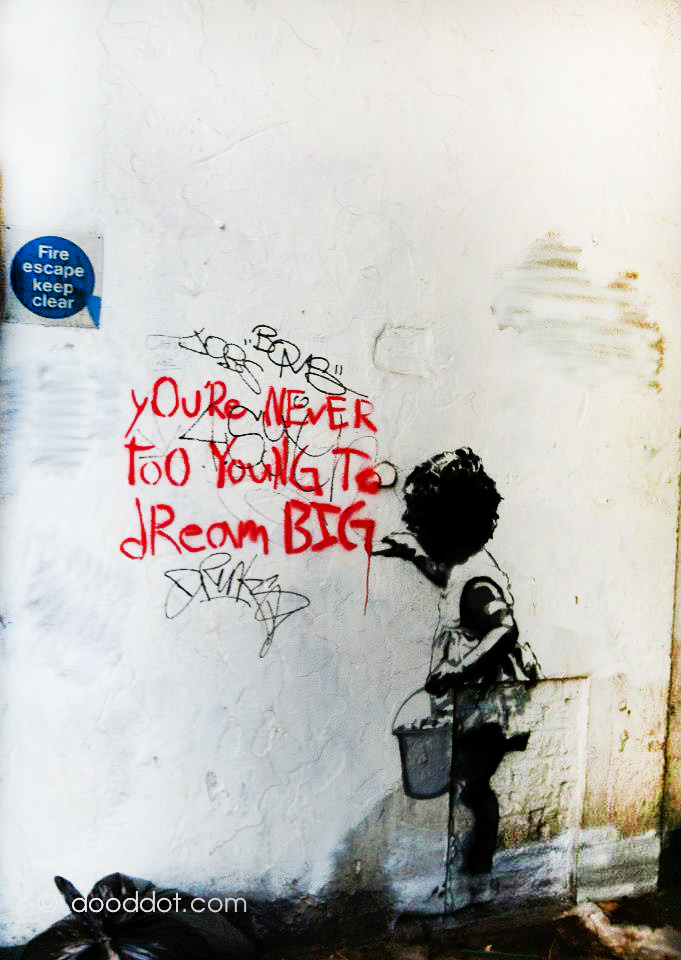 Fire
escape
keep
clear
"BOMB"
yOu'Re NEVER
TOO YOUNG To
dReam BIG
© dooddot.com